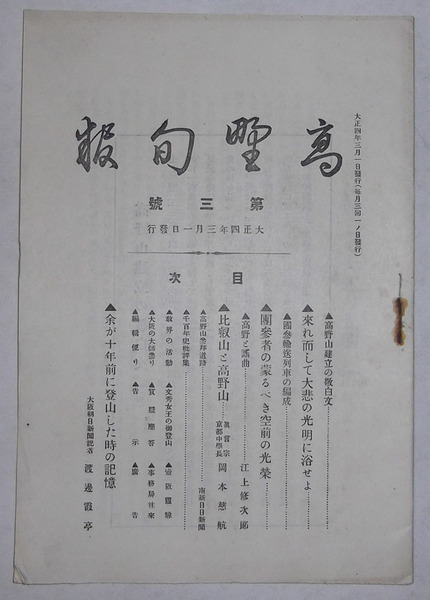 大正四年三月一日發行(毎月三回一ノ日發行)
高野旬報
第三號
大正四年三月一日發行
目次
▲高野山建立の敬白文
▲來れ而して大悲の光明に浴せよ
▲團參輸送列車の編成
▲團參者の蒙るべき空前の光榮
▲高野と謠曲 江上修次郎
▲比叡山と高野山 眞言宗京都中學長 岡本慈航
▲高野山參拜道路 南新日日新聞
▲千百年史批評集
▲教界の活動 ▲文秀女王の御登山
▲大阪の大師巡り
▲編輯便り ▲告示 ▲廣告
▲余が十年前に登山した時の記憶
大阪朝日新聞記者 渡邊霞亭